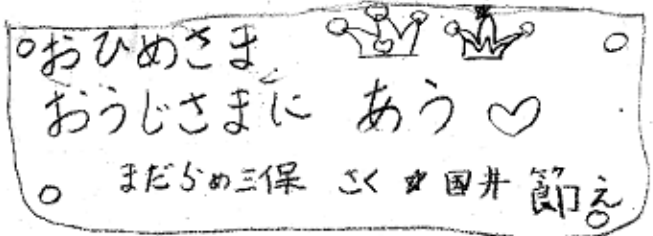 おひめさま
おうじさまに あう♡
まだらめ三保 さく ☆ 国井 節え